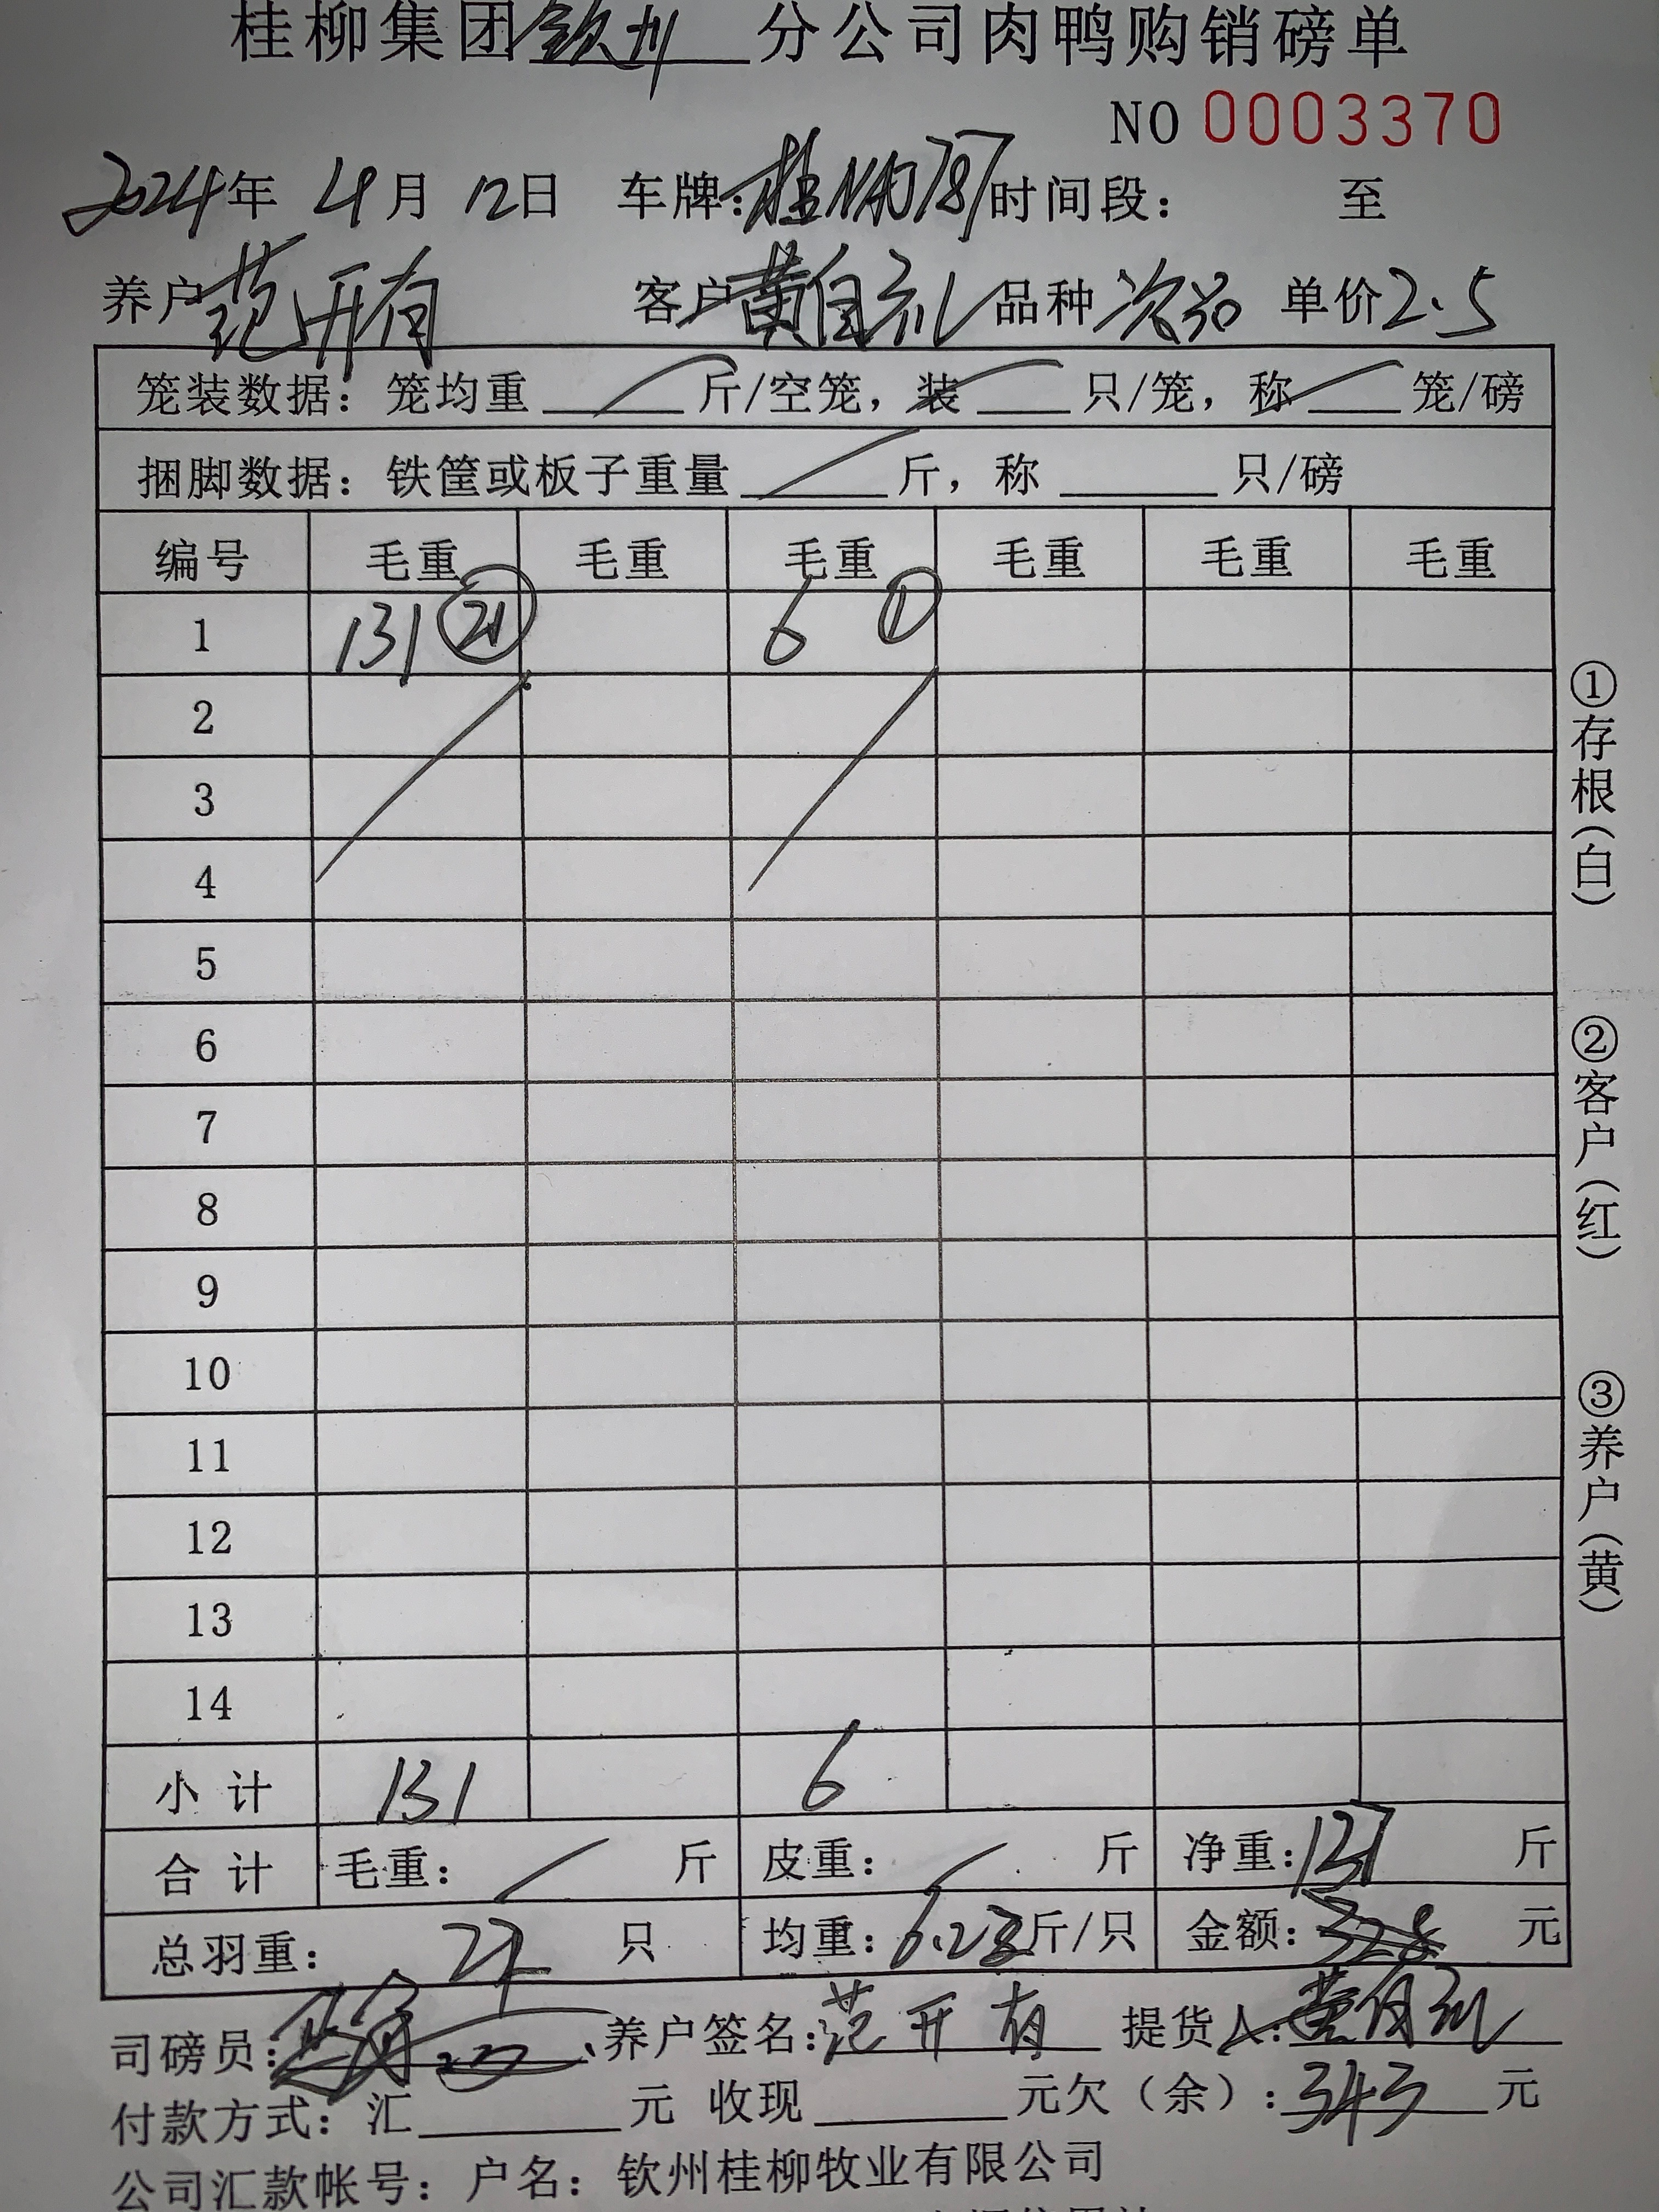 桂柳集团钦州分公司肉鸭购销磅单
NO 0003370
2024年 4月 12日 车牌:桂NAJ787时间段: 至
养户范开有 客户黄自礼品种次品 单价2.5
笼装数据:笼均重 斤/空笼,装 只/笼,称 笼/磅
捆脚数据:铁筐或板子重量 斤,称 只/磅
编号 毛重 毛重 毛重 毛重 毛重 毛重
1 131 21 6 ①
2
3
4
5
6
7
8
9
10
11
12
13
14
小计 131 6
合计 毛重: 斤 皮重: 斤 净重:137 斤
总羽重: 22 只 均重:6.23斤/只 金额:328 元
司磅员: 养户签名:范开有 提货人:黄自礼
付款方式:汇 元 收现 元欠(余):343元
公司汇款帐号:户名:钦州桂柳牧业有限公司
①存根(白)
②客户(红)
③养户(黄)